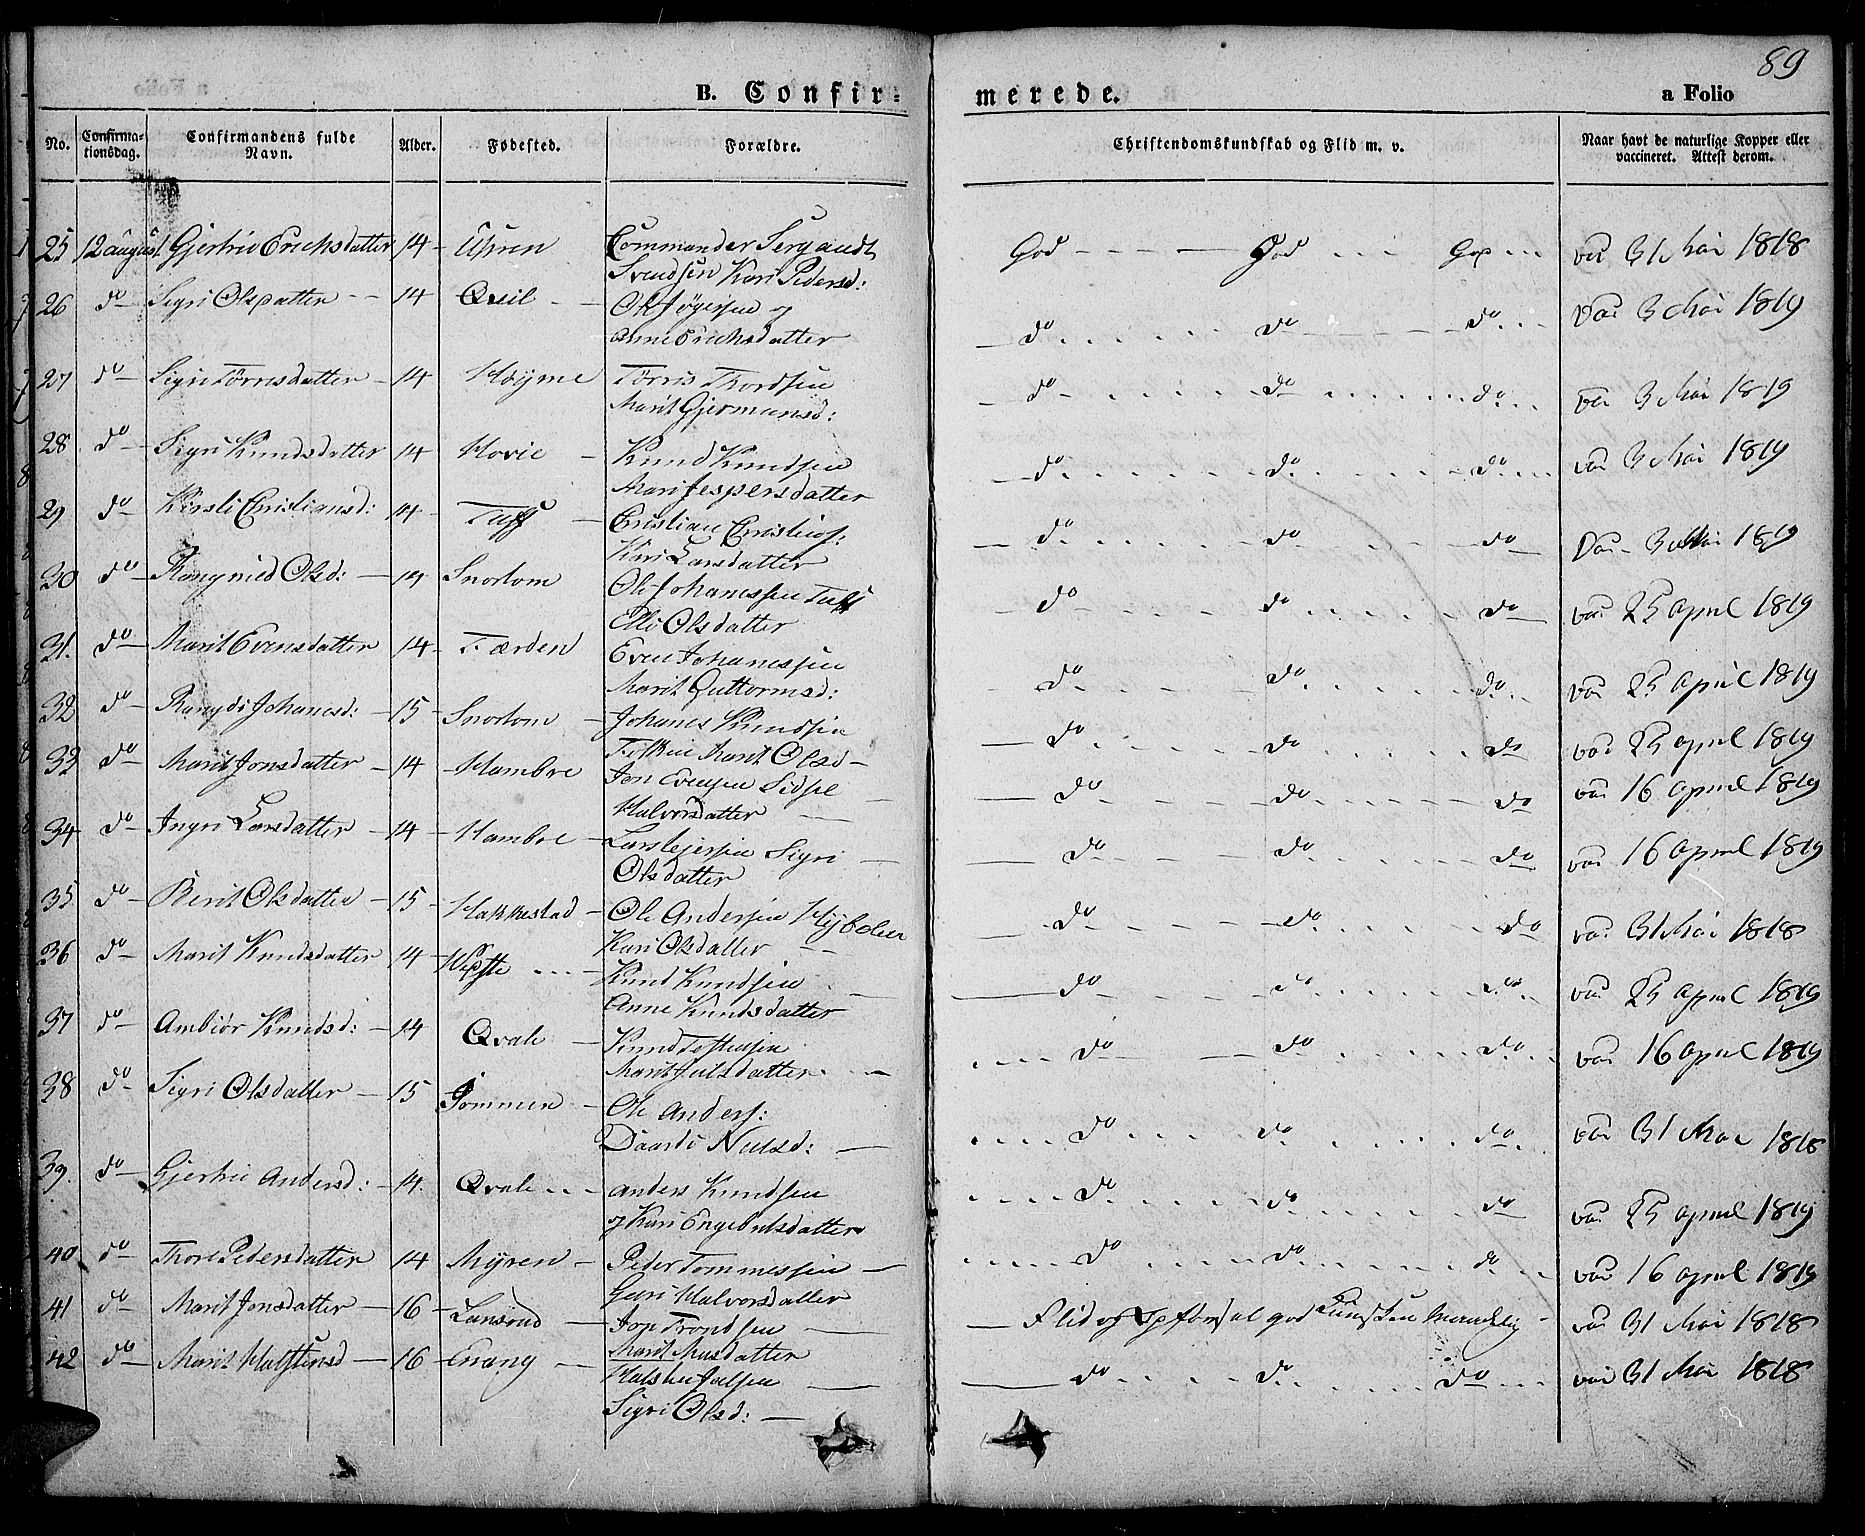 89
B. Confirmerede. a Folio
No. Confirmationsdag. Confirmandens fulde Navn. Alder. Fødested. Forældre. Christendomskundskab og Flid m. v. Naar havt de naturlige Kopper eller vaccineret. Attest derom.
25 12 august Gjertrud Erichsdatter 14 Commandeer Sergandt God God God vac 31 Mai 1818
Svendsen Kari Pedersd:
26 do Sigri Olsdatter 14 Qveil Ole og do do do vac 3 Mai 1819
Anne Erichsdatter
27 do Sigri Tørrisdatter 14 Høyme Tørris Thordsen do do do vac 3 Mai 1819
Marit Gjermunsd:
28 do Sigri Knudsdatter 14 Hovie Knud Knudsen do do do vac 3 Mai 1819
Mari Jespersdatter
29 do Kirsti Christiansd: 14 Tuff Cristian do do do vac 3 Mai 1819
Kari Larsdatter
30 do Olsd: 14 Snortom Ole Johanessen Tuff do do do vac 25 april 1819
Elli Olsdatter
31. do Marit Evensdatter 14 Færden Even Johanessen do do do vac 25 april 1819
Marit Guttormsd:
32 do Rangdi Johanesd: 15 Snortom Johanes Knudsen do do do vac 25 april 1819
Marit Olsd
33 do Marit Jonsdatter 14 Hambre Jon Evensen Sidsel do do do vac 16 april 1819
Halvorsdatter
34 do Ingri Larsdatter 14 Hambre Lars Sigri do do do vac 16 april 1819
Olsdatter
35 do Berit Olsdatter 15 Hakkestad Ole Andersen do do do vac 31 Mai 1818
Kari Olsdatter
36 do Marit Knudsdatter 14 Knud Knudsen do do do vac 25 april 1819
Anne Knudsdatter
37 do Ambiør Knudsd: 14 Qvale Knud Tostensen do do do vac 16 april 1819
Marit Julsdatter
38 do Sigri Olsdatter 15 Sommen Ole Anders: do do do vac 31 Mai 1818
Nielsd:
39. do Gjertrud Andersd: 14. Qvale Anders Knudsen do do do vac 25 april 1819
og Kari Engebretsdatter
40 do Thore Pedersdatter 14 Myren Peder Tommessen do do do vac 16 april 1819
Guri Halvorsdatter
41 do Marit Jonsdatter 16 Jon Trondsen Flid og god vac 31 Mai 1818
42 do Marit Halstensd 16 Enang Halsten Julsen do do do vac 31 Mai 1818
Sigri Olsd: